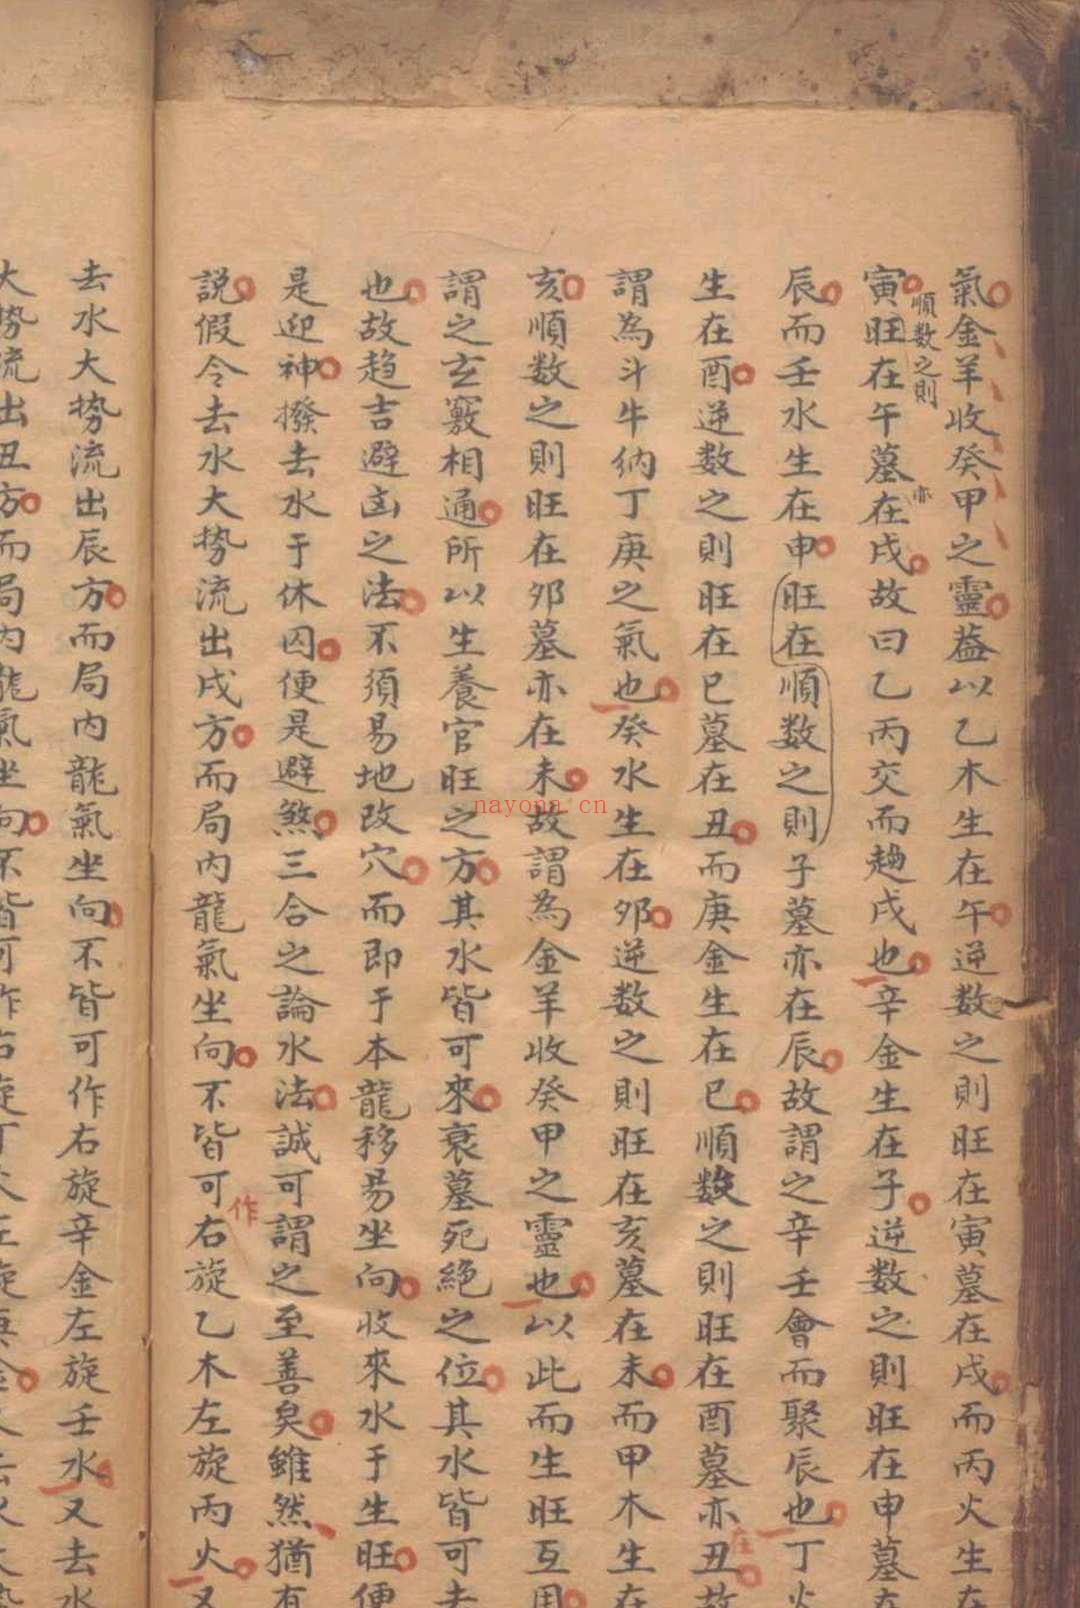 氣金羊收癸甲之靈葢以乙木生在午逆数之則旺在寅墓在戌而丙火生在
順数之則
亦
寅旺在午墓在戌故曰乙丙交而趋戌也辛金生在子逆数之則旺在申墓在
辰而壬水生在申旺在順数之則子墓亦在辰故謂之辛壬會而聚辰也丁火
生在酉逆数之則旺在巳墓在丑而庚金生在巳順数之則旺在酉墓亦丑故
在
謂為斗牛納丁庚之氣也癸水生在夘逆数之則旺在亥墓在未而甲木生在
亥順数之則旺在夘墓亦在未故謂為金羊收癸甲之靈也以此而生旺互用
謂之玄竅相通所以生養官旺之方其水皆可來衰墓死絕之位其水皆可去
也故趋吉避凶之法不須易地改穴而即于本龍移易坐向收來水于生旺便
是迎神撥去水于休囚便是避煞三合之論水法誠可謂之至善矣雖然猶有
說假令去水大势流出戌方而局内龍氣坐向不皆可右旋乙木左旋丙火又
作
去水大势流出辰方而局内龍氣坐向不皆可作右旋辛金左旋壬水又去水
大势流出丑方而局内龍氣坐向不皆可作右旋丁火左旋庚金又去水大势
nayona.cn